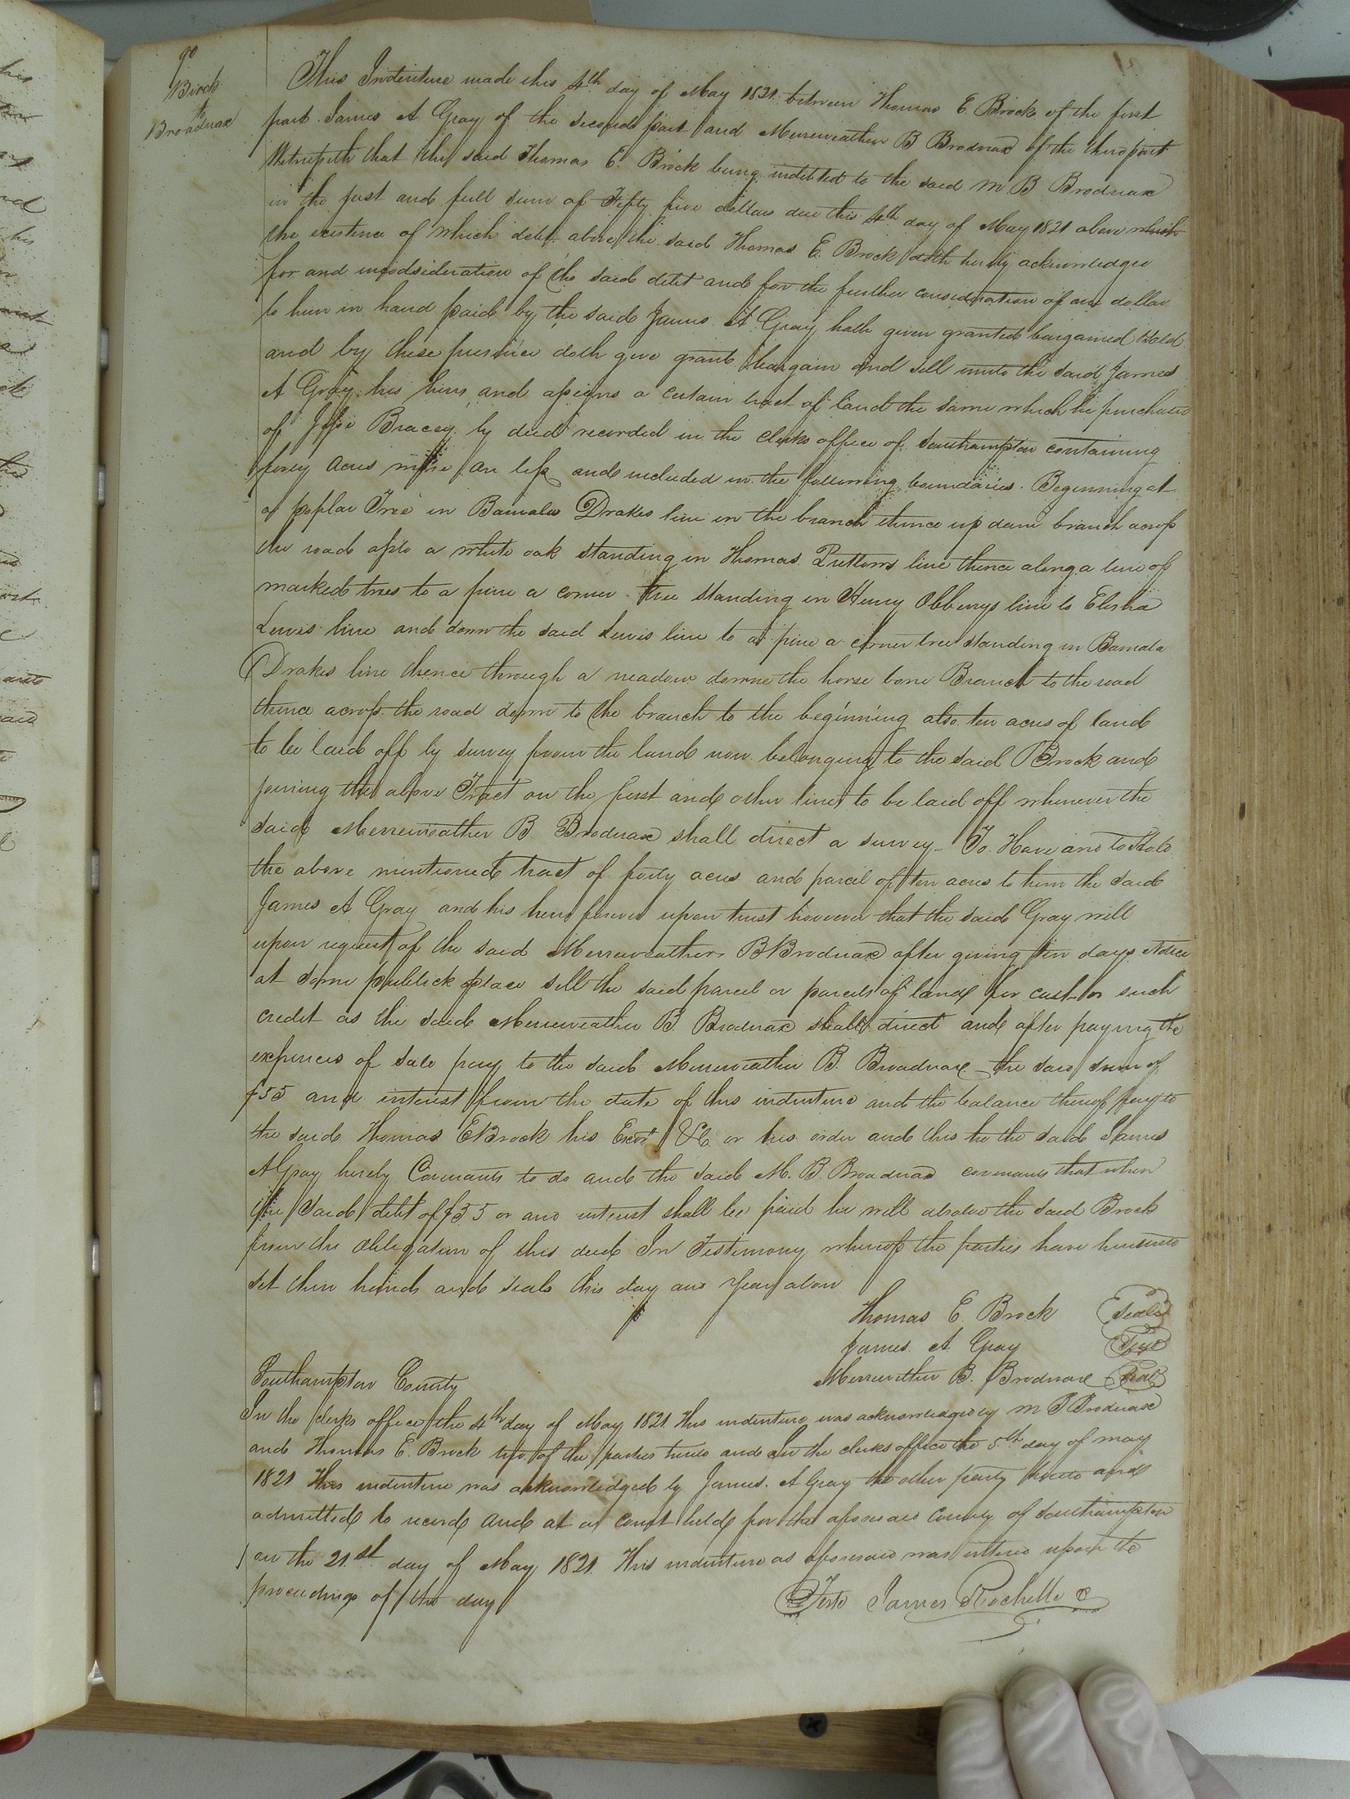 90
Brock
to
Broadnax
This Indenture made this 4th day of May 1821 between Thomas E. Brock of the first
part James A Gray of the second part and Merreweather B Brodnax of the third part
Witnesseth that the said Thomas E. Brock being indebted to the said M B Brodnax
in the just and full sum of Fifty five dollars due this 4th day of May 1821 above which
the existence of which debt above the said Thomas E. Brock doth hereby acknowledge
for and in consideration of the said debt and for the further consideration of one dollar
to him in hand paid by the said James A Gray hath given granted bargained & sold
and by these presence doth give grant bargain and sell unto the said James
A Gray his heirs and assigns a certain tract of land the same which he purchased
of Jesse Bracey by deed recorded in the clerks office of Southampton containing
forty acres more an less and included in the following boundaries. Beginning at
a poplar Tree in Barnaba Drakes line in the branch thence up said branch across
the road to a white oak standing in Thomas Prettows line thence along a line of
marked trees to a pine a corner tree standing in Henry Obberrys line to Elisha
Lewis line and down the said Lewis line to a pine a corner tree standing in Barnaba
Drakes line thence through a meadow downe the horse bone Branch to the road
thence across the road down to the branch to the beginning also ten acres of land
to be laid off by survey from the land now belonging to the said Brock and
joining the above Tract on the first and other line to be laid off whenever the
said Merreweather B. Brodnax shall direct a survey - To Have and to Hold
the above mentioned tract of forty acres and parcel of ten acres to him the said
James A Gray and his heirs forever upon trust however that the said Gray will
upon request of the said Merreweather B Brodnax after giving ten days Notice
at some publick place sell the said parcel or parcels of land for cash or such
credit as the said Merreweather B. Brodnax shall direct and after paying the
expences of sale pay to the said Merreweather B. Broadnax the said sum of
$55 and interest from the date of this indenture and the balance thereof pay to
the said Thomas E Brock his Exors &C or his order and this he the said James
A Gray hereby Covenants to do and the said M. B Broadnax covenants that when
the said debt of $55 or and interest shall be paid he will absolve the said Brock
from the obligation of this deed In Testimony whereof the parties have hereunto
set their hands and seals this day and year above
Thomas E. Brock Seal
James A Gray Seal
Merreweather B. Brodnax Seal
Southampton County
In the clerks office the 4th day of May 1821 This indenture was acknowledged by M B Brodnax
and Thomas E. Brock two of the parties thereto and In the clerks office the 5th day of May
1821 This indenture was acknowledged by James. A Gray the other party thereto and
admitted to record and at a court held for the aforesaid county of Southampton
on the 21st day of May 1821 This indenture as aforesaid was entered upon the
proceedings of the day
Teste James Rochelle C